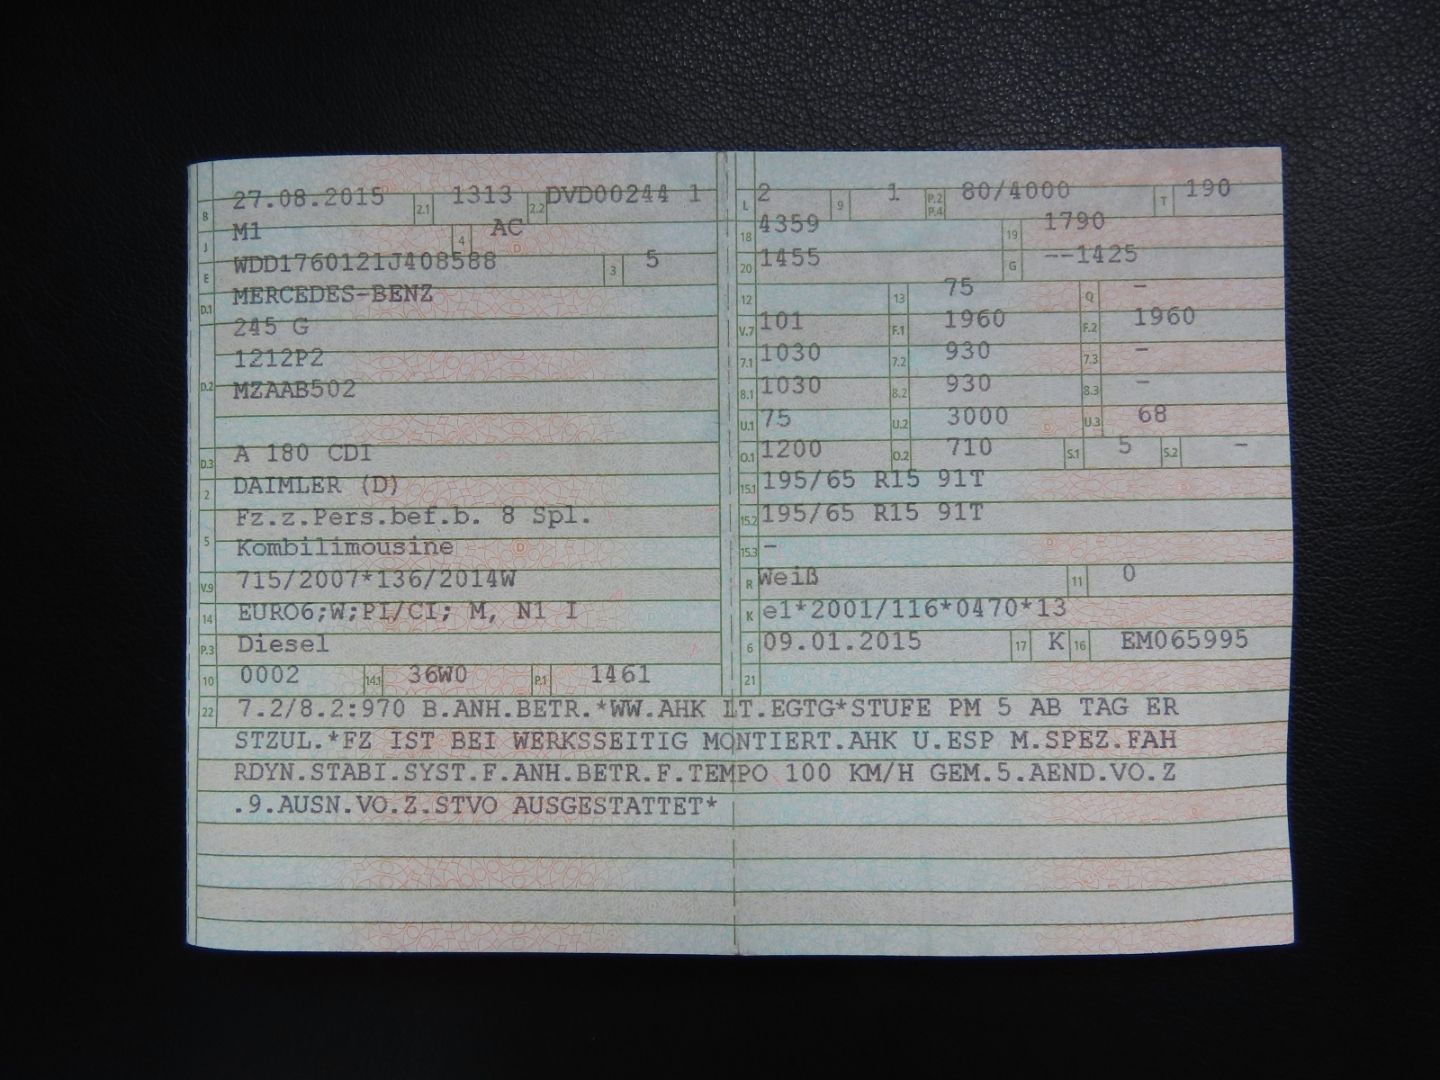 B 27.08.2015 2.1 1313 2.2 DVD00244 1
J M1 4 AC
E WDD1760121J408588 3 5
D.1 MERCEDES-BENZ
245 G
1212P2
D.2 MZAAB502
D.3 A 180 CDI
2 DAIMLER (D)
Fz.z.Pers.bef.b. 8 Spl.
5 Kombilimousine
V.9 715/2007*136/2014W
14 EURO6;W;PI/CI; M, N1 I
P.3 Diesel
10 0002 14.1 36W0 P.1 1461
L 2 9 1 P.2 P.4 80/4000 T 190
18 4359 19 1790
20 1455 G --1425
12 13 75 Q -
V.7 101 F.1 1960 F.2 1960
7.1 1030 7.2 930 7.3 -
8.1 1030 8.2 930 8.3 -
U.1 75 U.2 3000 U.3 68
O.1 1200 O.2 710 S.1 5 S.2 -
15.1 195/65 R15 91T
15.2 195/65 R15 91T
15.3 -
R Weiß 11 0
K e1*2001/116*0470*13
6 09.01.2015 17 K 16 EM065995
21
22 7.2/8.2:970 B.ANH.BETR.*WW.AHK LT.EGTG*STUFE PM 5 AB TAG ER
STZUL.*FZ IST BEI WERKSSEITIG MONTIERT.AHK U.ESP M.SPEZ.FAH
RDYN.STABI.SYST.F.ANH.BETR.F.TEMPO 100 KM/H GEM.5.AEND.VO.Z
.9.AUSN.VO.Z.STVO AUSGESTATTET*